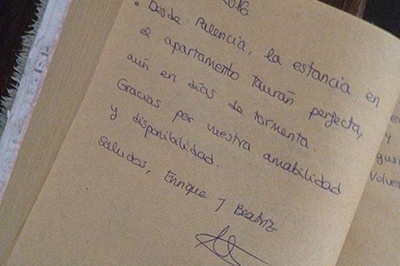 2016
• Desde Palencia, la estancia en
el apartamento Taurañ perfecta,
aún en días de tormenta.
Gracias por vuestra amabilidad
y disponibilidad.
Saludos, Enrique y Beatriz
y